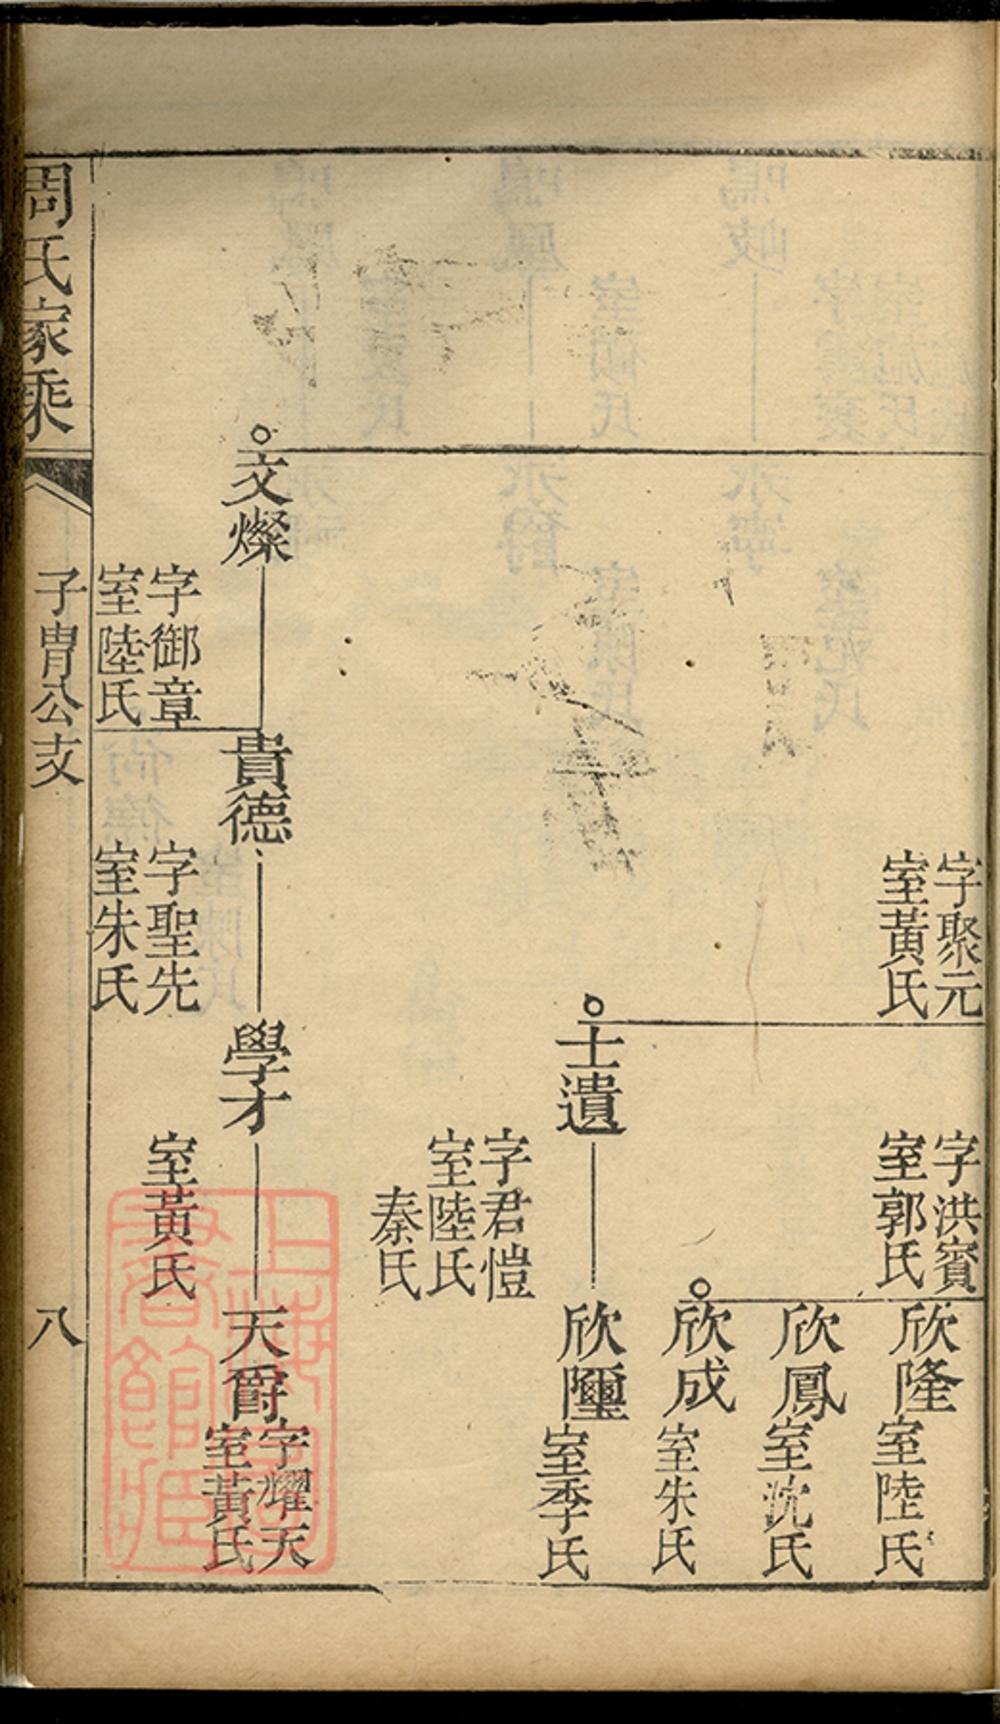 字聚元
室黃氏
字洪賓
室郭氏
欣隆
室陸氏
欣鳳
室沈氏
欣成
室朱氏
士遺
字君愷
室陸氏
秦氏
欣璽
室季氏
文燦
字御章
室陸氏
貴德
字聖先
室朱氏
學才
室黃氏
天爵
字耀天
室黃氏
周氏家乘
子胄公支
八
上海圖書館藏